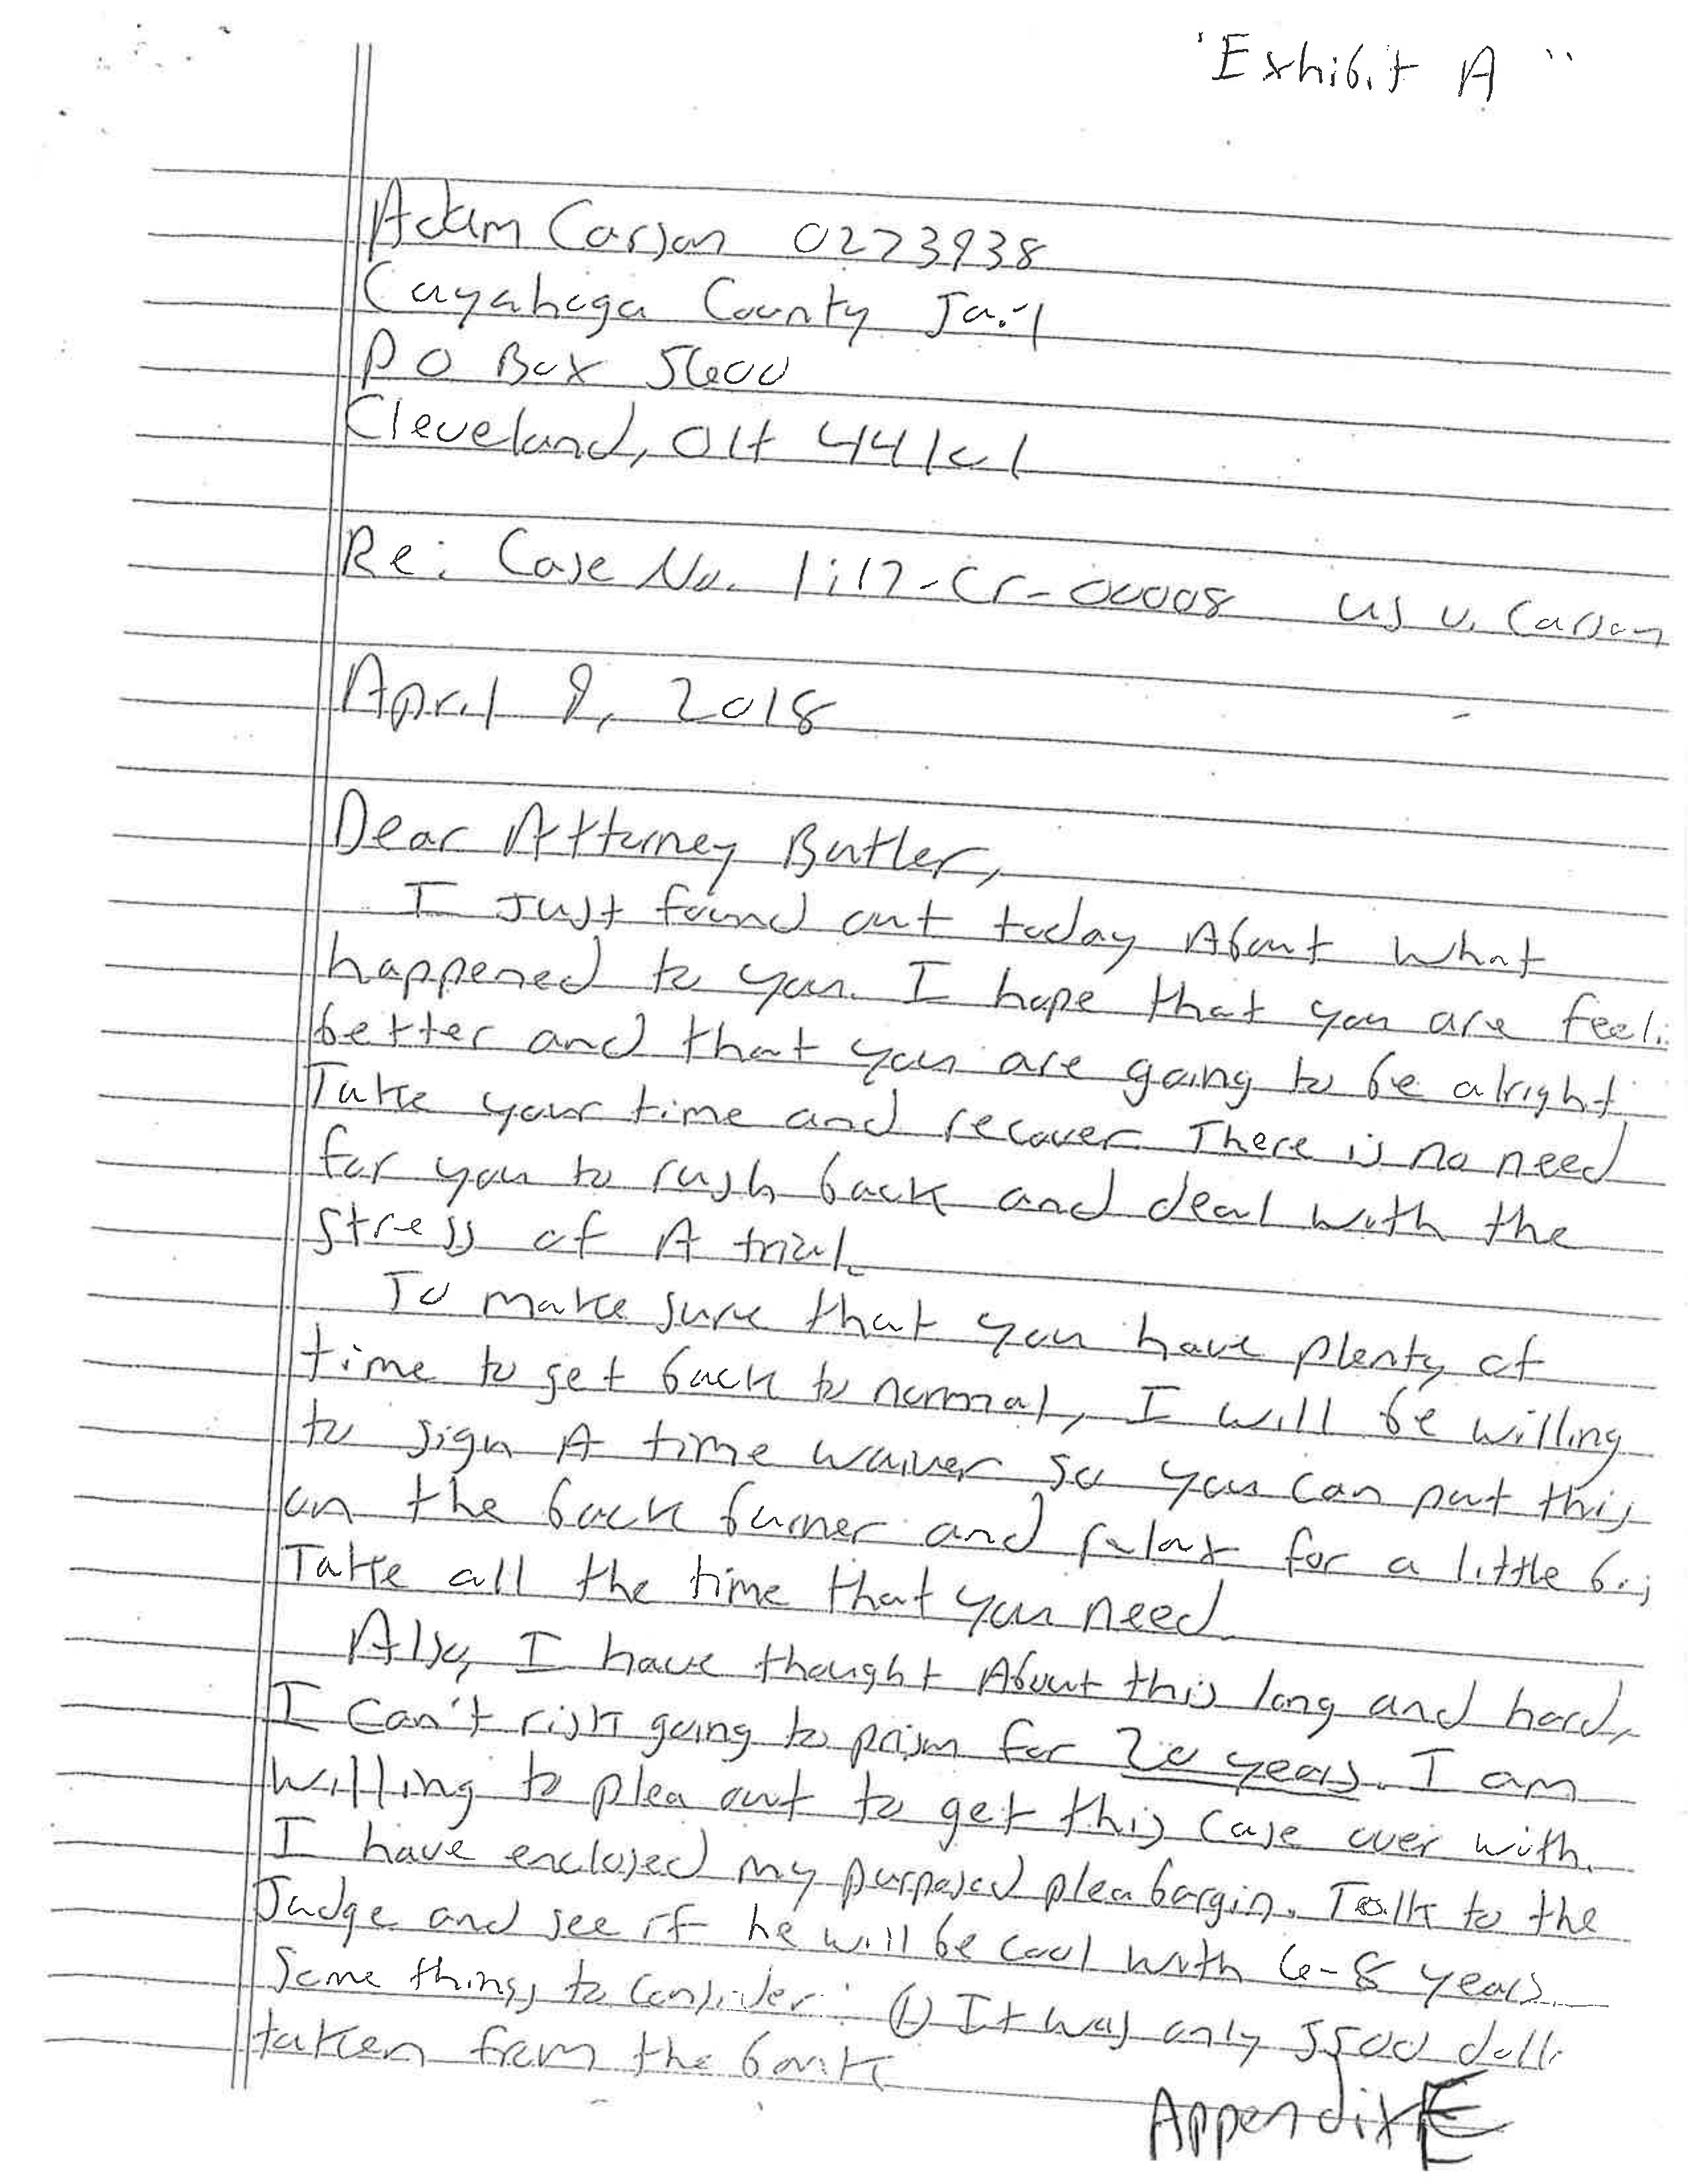 "Exhibit A"
Adam Carson 0273938
Cuyahoga County Jail
PO Box 5600
Cleveland, OH 44101
Re: Case No. 1:17-cr-00008 US v. Carson
April 9, 2018
Dear Attorney Butler,
I Just found out today About what
happened to you. I hope that you are feeli
better and that you are going to be alright.
Take your time and recover. There is no need
for you to rush back and deal with the
stress of A trial.
To make sure that you have plenty of
time to get back to normal, I will be willing
to sign A time waiver so you can put this
on the back burner and relax for a little bi
Take all the time that you need.
Also, I have thought About this long and hard,
I can't risk going to prison for 20 years. I am
willing to plea out to get this case over with.
I have enclosed my purposed plea bargin. Talk to the
Judge and see if he will be cool with 6-8 years.
Some things to consider: (1) It was only 5500 doll
taken from the bank
Appendix E